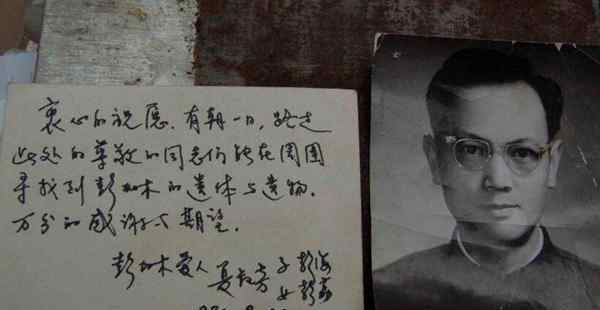 衷心的祝愿，有朝一日，路走
此处的尊敬的同志们能在周围
寻找到彭加木的遗体与遗物，
万分的感谢与期望。
彭加木爱人 夏叔芳 子 彭海
女 彭荔